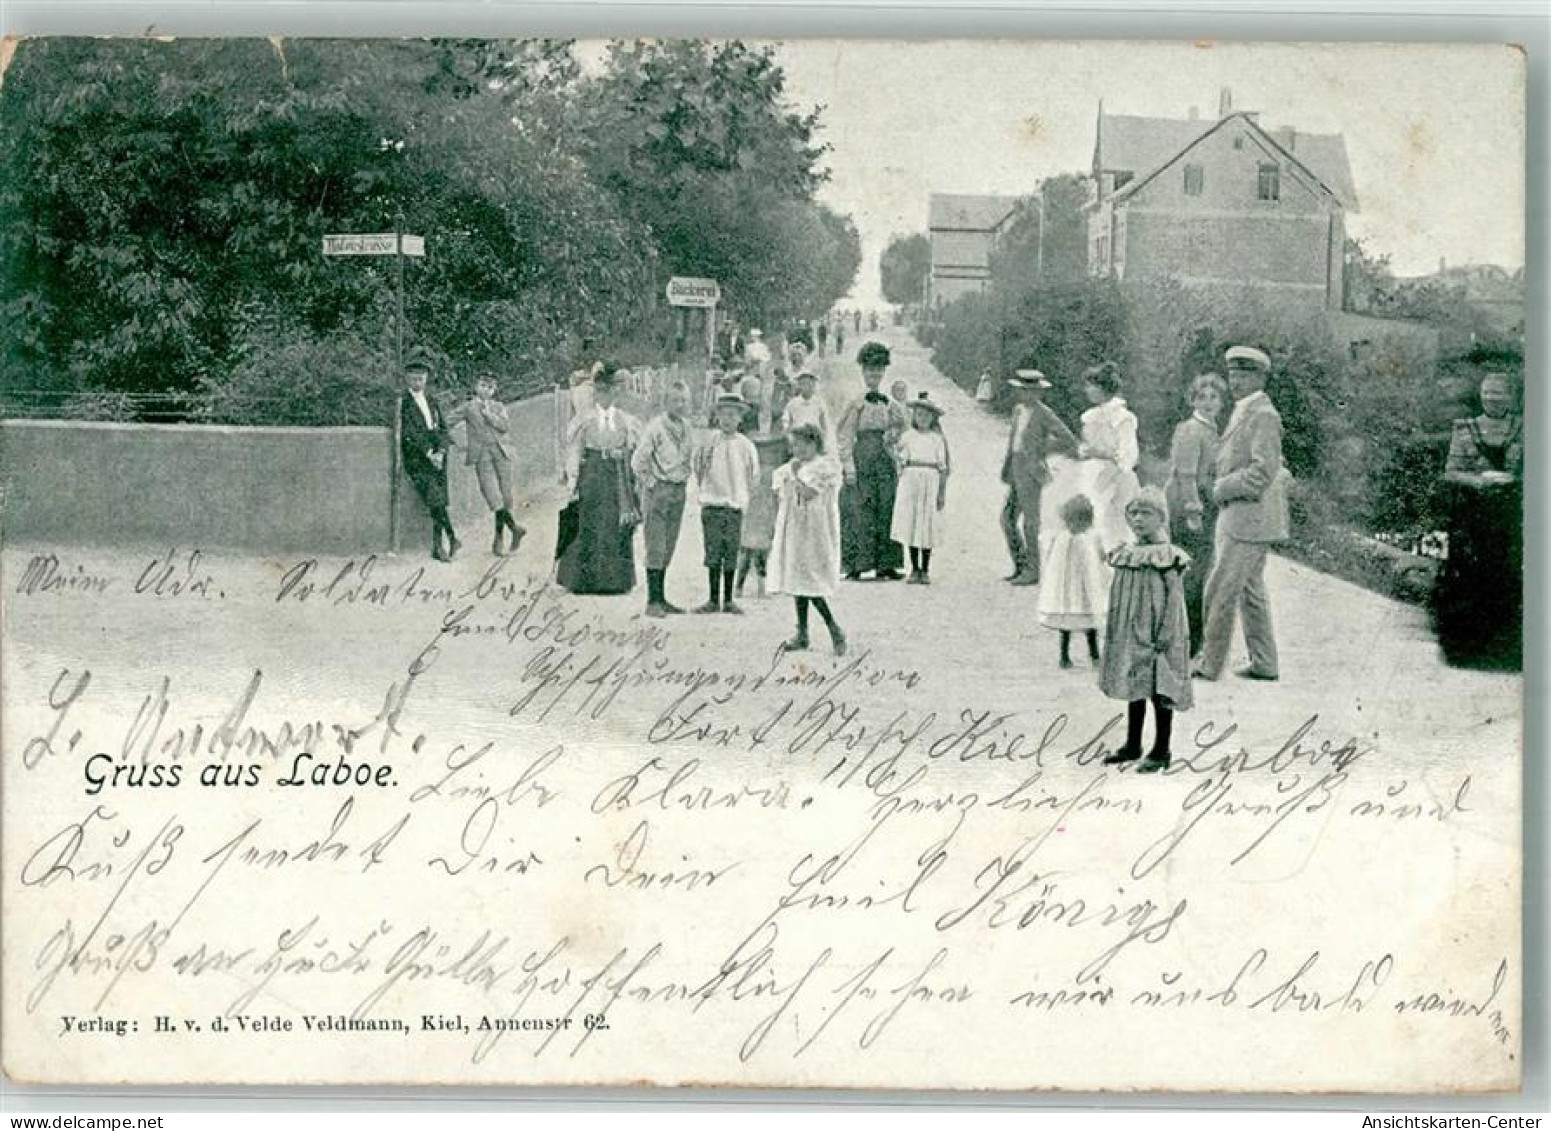 Bäckerei
Mein Adr. Soldatenbrief
Emil Königs
Schiffsjungendivision
Fort Stosch Kiel bei Laboe
b. Antwort.
Gruss aus Laboe.
Liebe Klara. Herzlichen Gruß und
Kuß sendet Dir Dein Emil Königs
Gruß an Hoffentlich sehen wir uns bald wieder
Verlag: H. v. d. Velde Veldmann, Kiel, Annenstr 62.
Ansichtskarten-Center